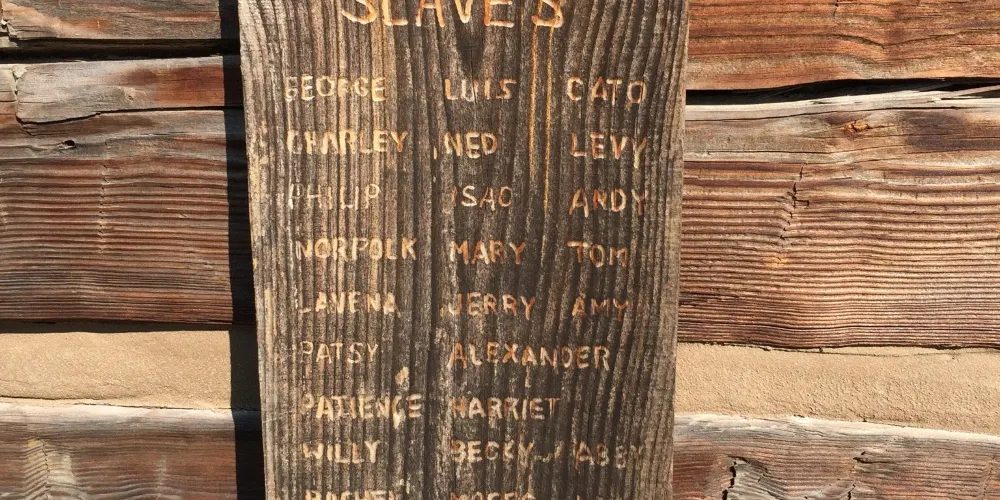 SLAVES
GEORGE LUIS CATO
CHARLEY NED LEVY
PHILIP ISAC ANDY
NORFOLK MARY TOM
LAVENA JERRY AMY
PATSY ALEXANDER
PATIENCE HARRIET
WILLY BECKY ABBY
RACHEL MOSES